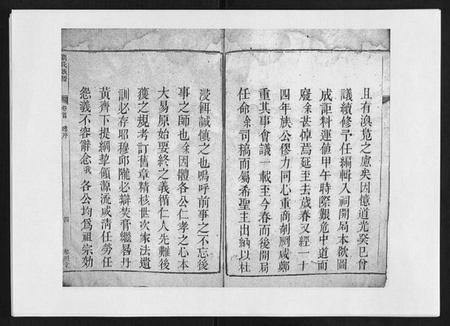 且有渙覓之慮矣因憶道光癸巳曾
議續修予任編輯入祠開局本欲圖
成詎料運值甲午時際艱危中道而
廢余甚悼焉延至去歲春又經一十
四年族公僇力同心重商剞劂咸鄭
重其事會議一載至今春而後開局
任命余司搞而屬希聖主出納以杜
浸餌誠慎之也嗚呼前事之不忘後
事之師也余因體各公仁孝之心本
大易原始要終之義循仁人先難後
獲之規考訂舊章精核世次宋法遺
訓必存昭穆邱隴必辯焚膏繼晷丹
黃齊下提綱挈領源流咸清任勞任
怨義不容辭念我各公均為祖宗効
氏族譜
卷首
序
四